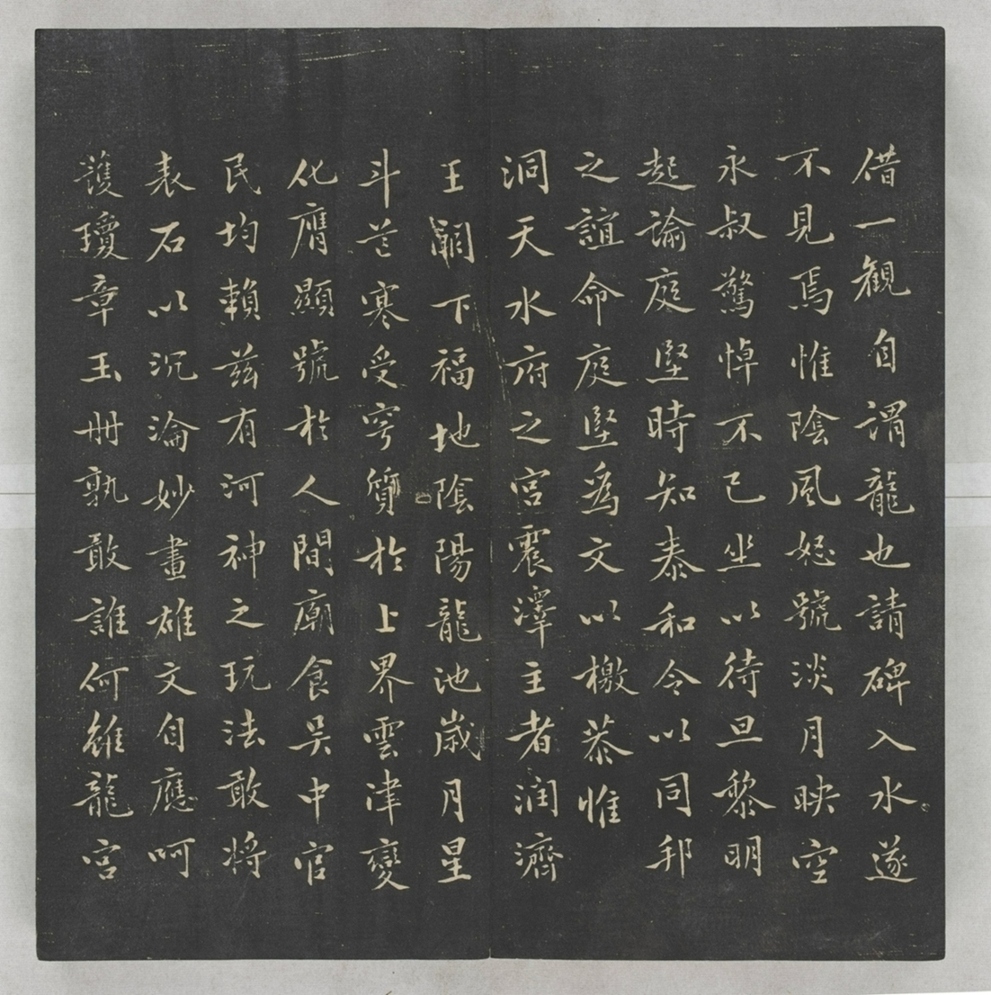 借一觀自謂龍也請碑入水遂
不見焉惟陰風怒號淡月映空
永叔驚悼不已坐以待旦黎明
起諭庭堅時知泰和令以同邦
之誼命庭堅為文以檄恭惟
洞天水府之宮震澤主者润濟
王闕下福地陰陽龍池歲月星
斗芒寒受穹質於上界雲津變
化膺顯號於人間廟食吴中官
民均賴茲有河神之玩法敢將
表石以沉淪妙畫雄文自應呵
護瓊章玉冊孰敢誰何雖龍宮